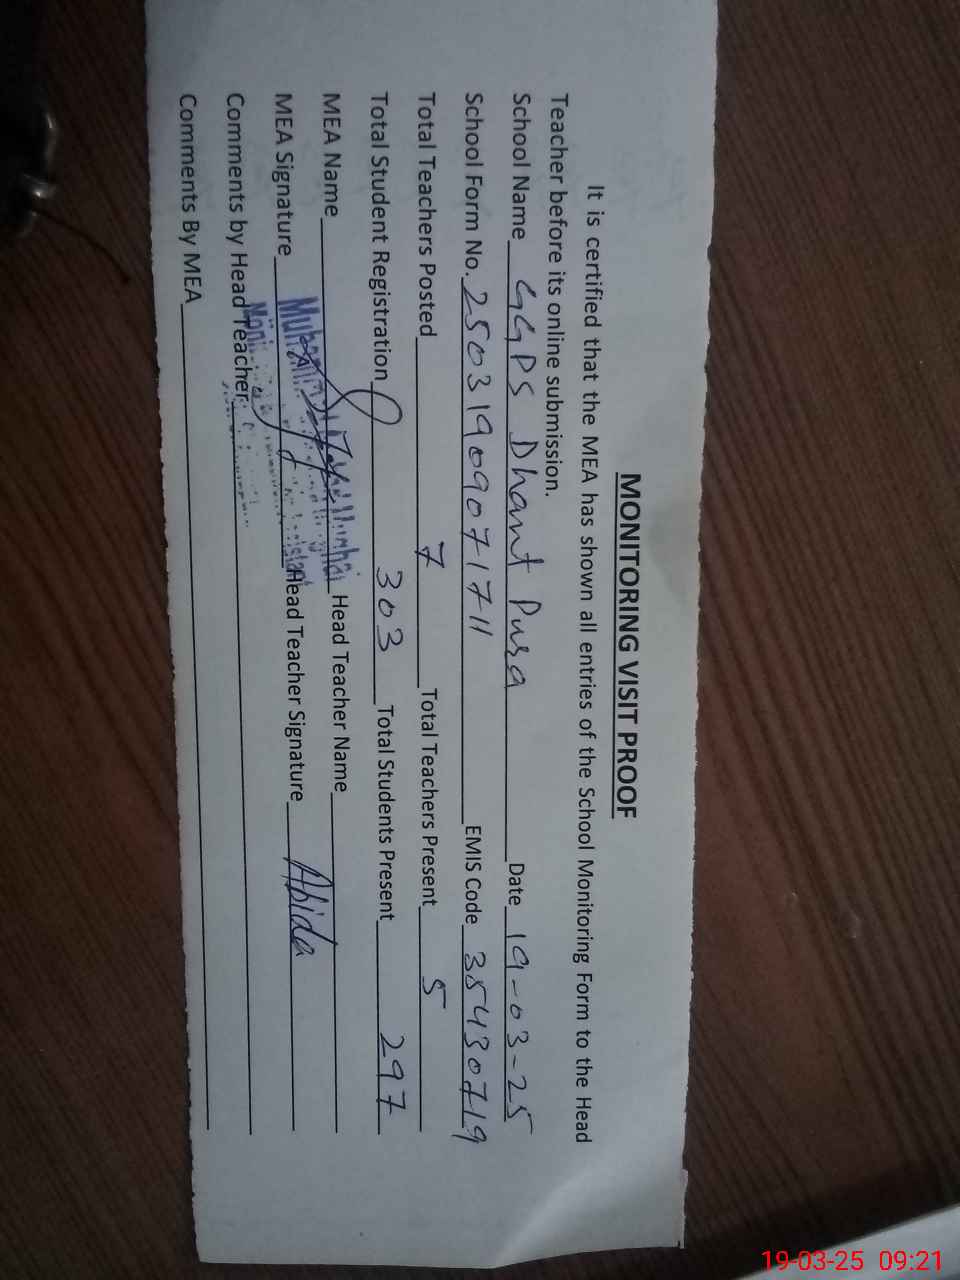 MONITORING VISIT PROOF
It is certified that the MEA has shown all entries of the School Monitoring Form to the Head
Teacher before its online submission.
School Name GGPS Dhant Pura Date 19-03-25
School Form No. 25031909071711 EMIS Code 35430719
Total Teachers Posted 7 Total Teachers Present 5
Total Student Registration 303 Total Students Present 297
MEA Name Head Teacher Name
MEA Signature Head Teacher Signature Abida
Comments by Head Teacher
Comments By MEA
19-03-25 09:21